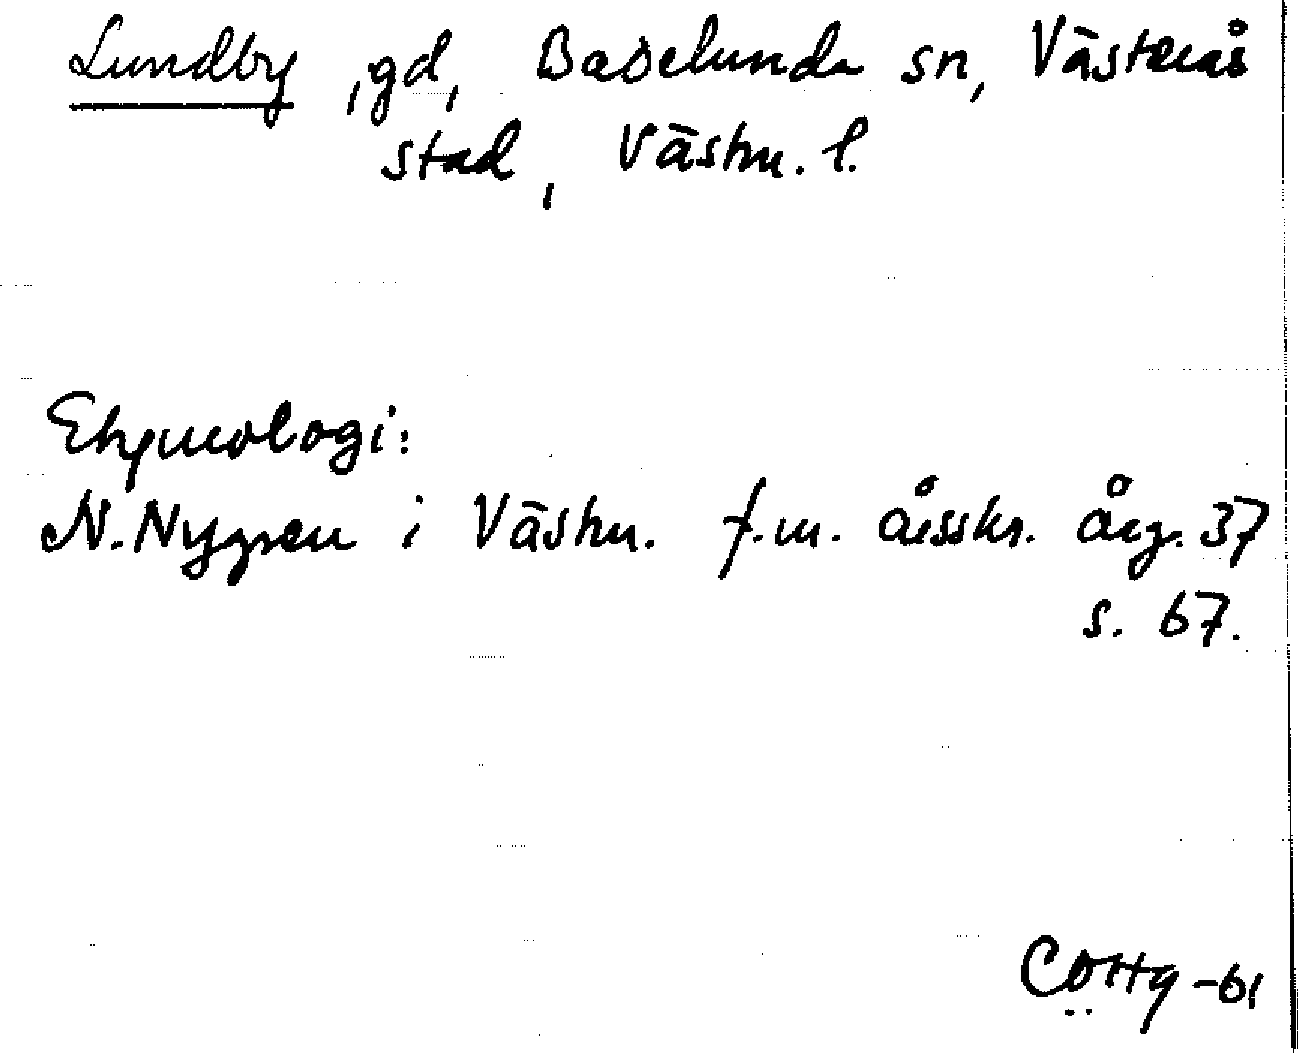 Lundby, gd, Badelunda sn, Västerås
stad, Västm. l.
Etymologi:
N. Nygren i Västm. f.m. årsskr. årg. 37
s. 67.
-61